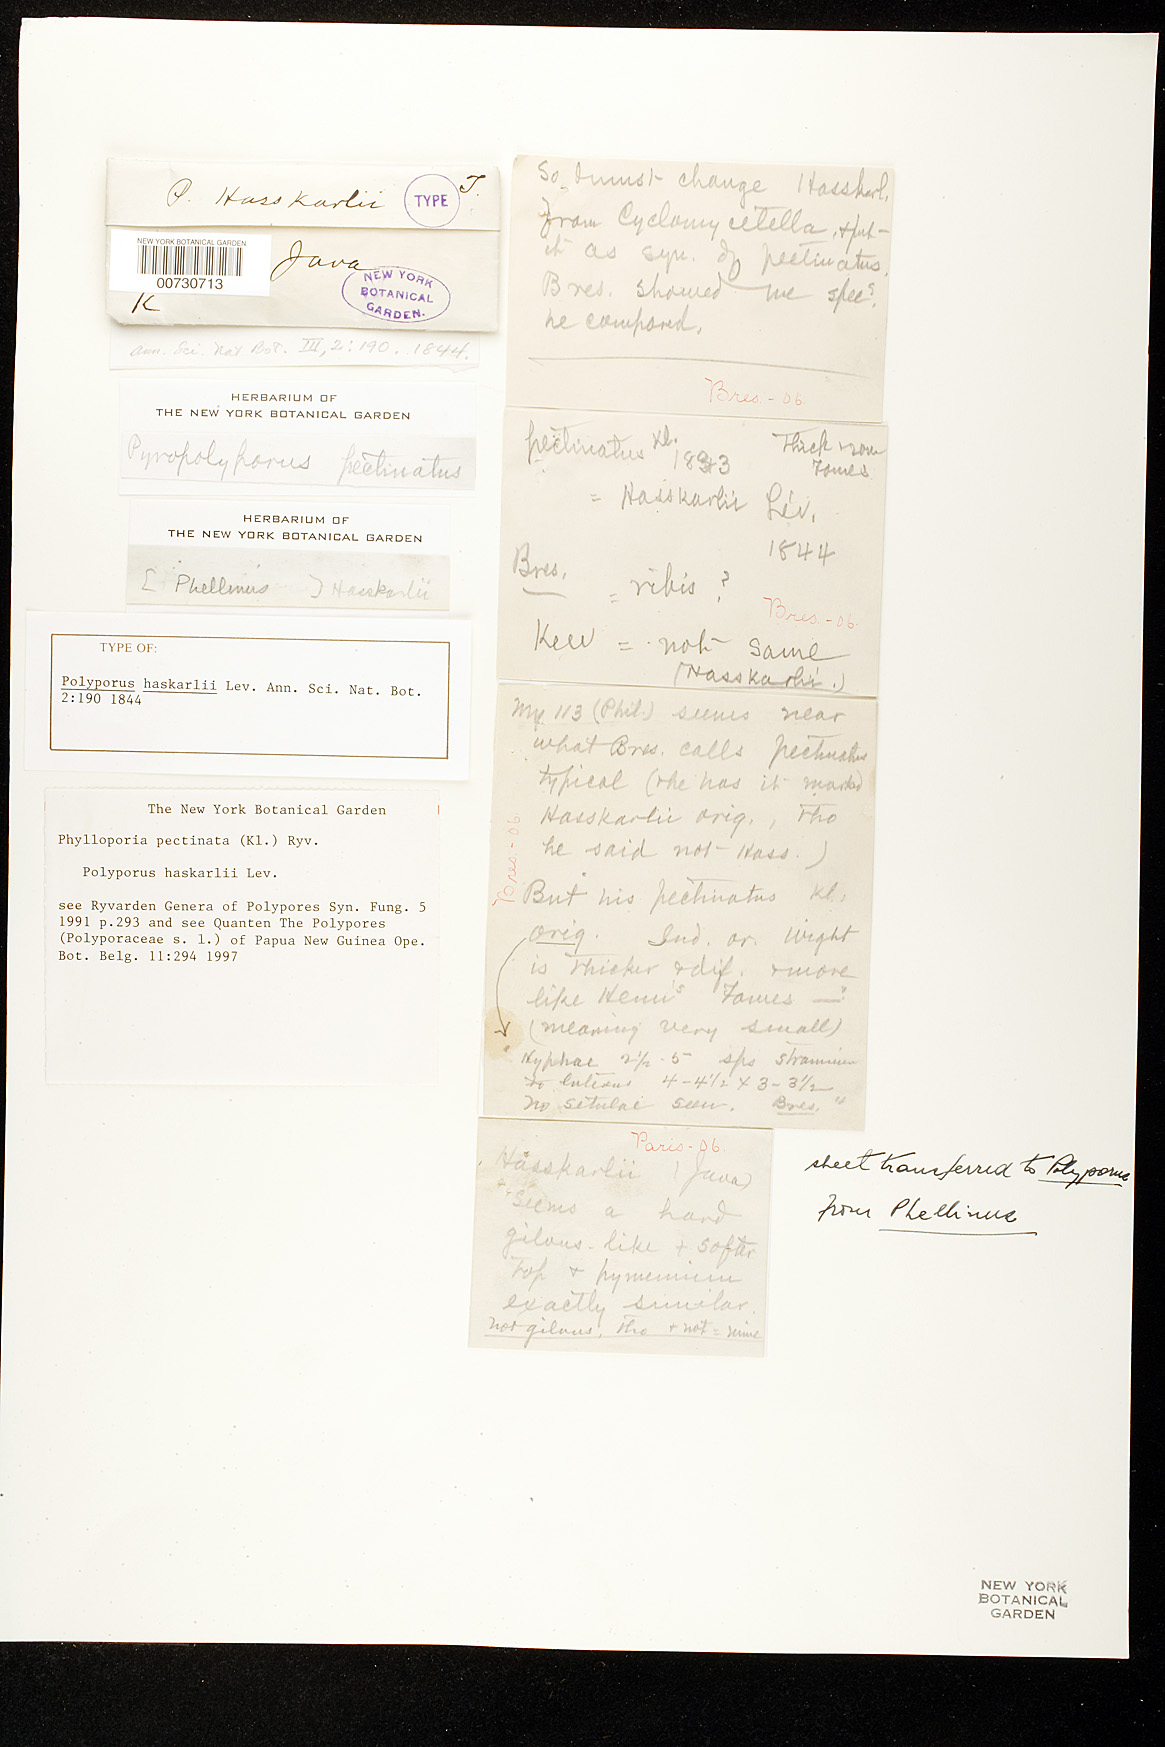 P. Hasskarlii
TYPE
T.
NEW YORK BOTANICAL GARDEN
00730713
Java
K
NEW YORK
BOTANICAL
GARDEN.
Ann. Sci. Nat. Bot. III, 2: 190. 1844.
HERBARIUM OF
THE NEW YORK BOTANICAL GARDEN
Pyropolyporus pectinatus
HERBARIUM OF
THE NEW YORK BOTANICAL GARDEN
[ Phellinus ] Hasskarlii
TYPE OF:
Polyporus haskarlii Lev. Ann. Sci. Nat. Bot.
2:190 1844
The New York Botanical Garden
Phylloporia pectinata (Kl.) Ryv.
Polyporus haskarlii Lev.
see Ryvarden Genera of Polypores Syn. Fung. 5
1991 p.293 and see Quanten The Polypores
(Polyporaceae s. l.) of Papua New Guinea Ope.
Bot. Belg. 11:294 1997
So I must change Hasskarl.
from Cyclomycetella, & put
it as syn. of pectinatus.
Bres. showed me specs.
he compared.
Bres. - 06
pectinatus Kl.
1833
Thick & non
Fomes
= Hasskarlii Lév.
1844
Bres.
= ribis ?
Bres. - 06.
Kew = not same
(Hasskarlii.)
My 113 (Phil.) seems near
what Bres. calls pectinatus
typical (& he has it marked
Hasskarlii orig., tho
he said not Hass.)
Bres - 06
But his pectinatus Kl.
orig. Ind. or. Wight
is thicker & dif. & more
like Henn's Fomes —"
(meaning very small)
"Hyphae 2½-5 sps stramineo
to luteous 4-4½ x 3-3½
no setulae seen. Bres."
Paris-06.
Hasskarlii (Java)
"Seems a hard
gilvus-like & softer
top & hymenium
exactly similar.
not gilvus, tho & not = mine
sheet transferred to Polyporus
from Phellinus
NEW YORK
BOTANICAL
GARDEN